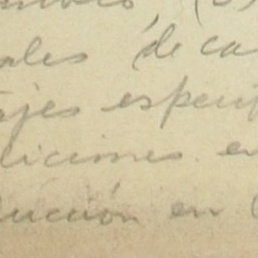 ales de ca
ajes especif
diciones en
ducción en